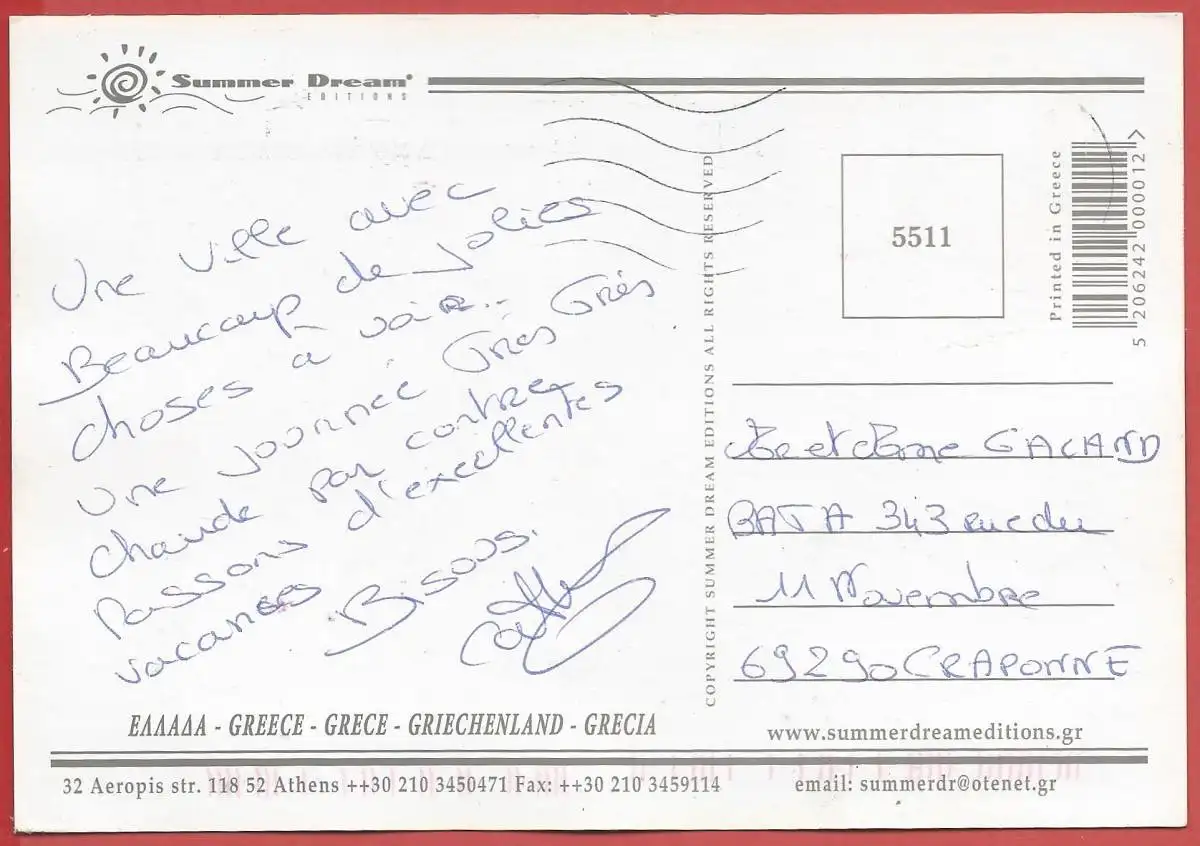 Summer Dream
EDITIONS
Une ville avec
Beaucoup de jolies
choses a voir...
Une journée Très Très
chaude par contre
Passons d'excellentes
vacances
Bisous.
COPYRIGHT SUMMER DREAM EDITIONS ALL RIGHTS RESERVED
5511
Printed in Greece
5 206242 000012 >
et GACAND
BATA 343 rue du
11 Novembre
69290 CRAPONNE
ΕΛΛΑΔΑ - GREECE - GRECE - GRIECHENLAND - GRECIA
www.summerdreameditions.gr
32 Aeropis str. 118 52 Athens ++30 210 3450471 Fax: ++30 210 3459114
email: summerdr@otenet.gr